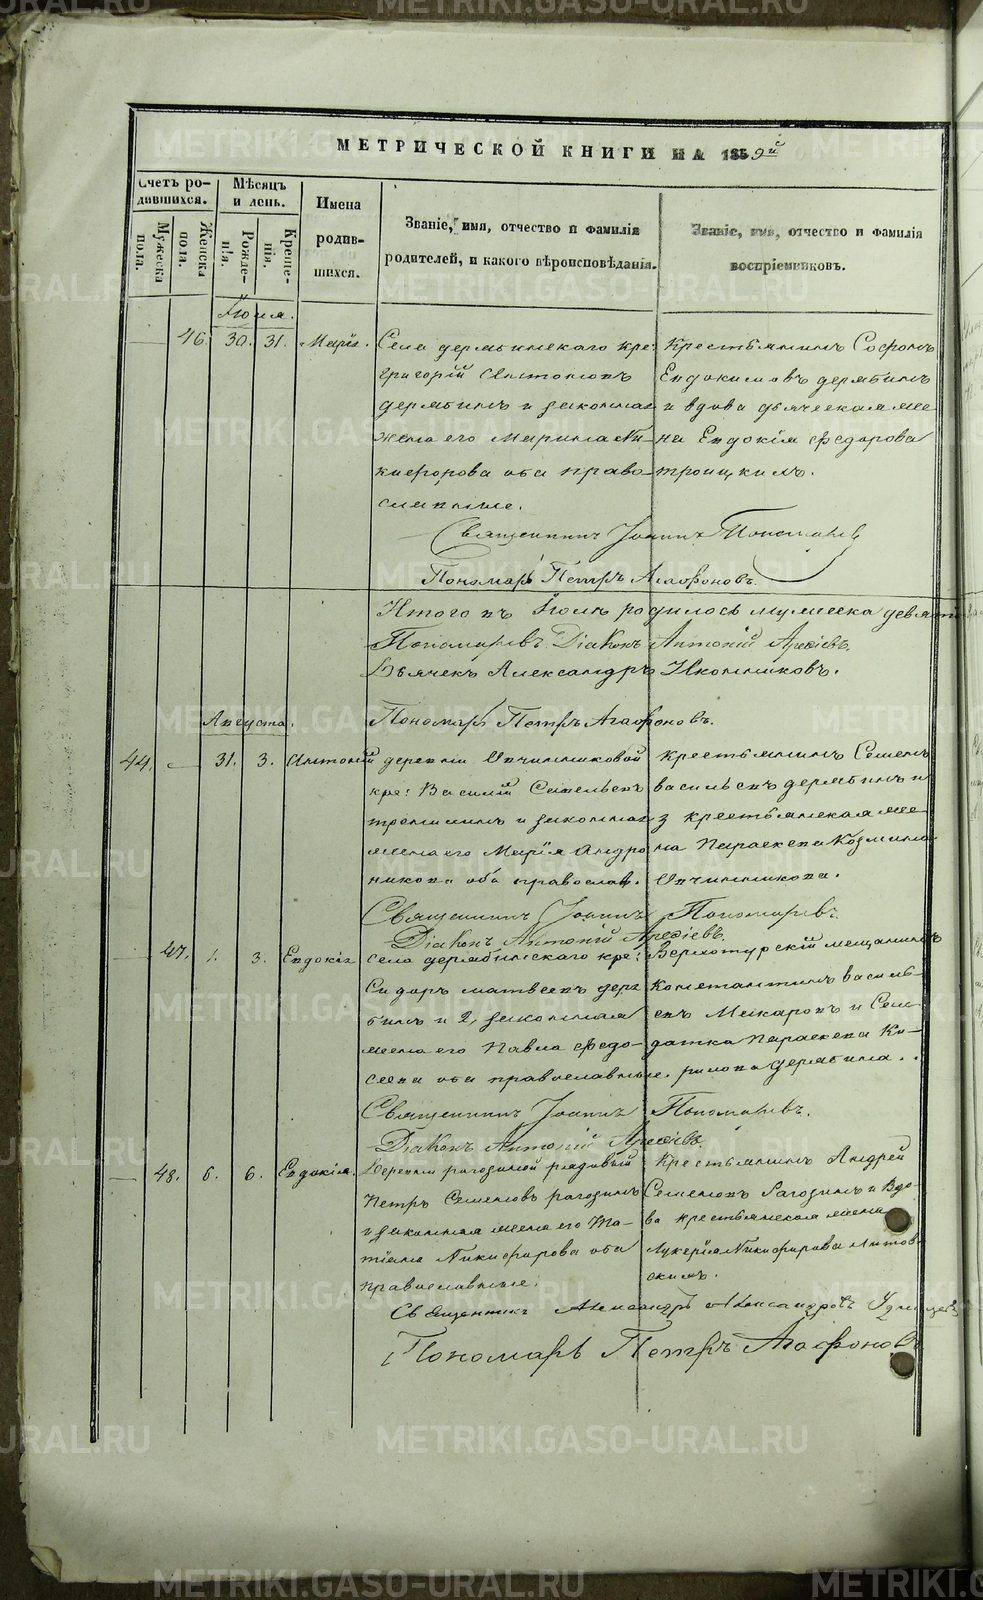 МЕТРИЧЕСКОЙ КНИГИ НА 1859й
Счетъ ро-
дившихся.
Мужеска
пола.
Женска
пола.
Мѣсяцъ
и день.
Рожде-
нія.
Креще-
нія.
Имена
родив-
шихся.
Званіе, имя, отчество и фамилія
родителей, и какого вѣроисповѣданія.
Званіе, имя, отчество и фамилія
воспріемниковъ.
Іюля.
46. 30. 31. Марія.
Села дерябинскаго кре:
Григорій Антоновъ
дерябинъ и законная
жена его Марина Ни-
кифорова оба право-
славные.
Крестьянинъ Софонъ
Евдокимовъ дерябинъ
и вдова дьяческая же-
на Евдокія Федорова
троицкихъ.
Священникъ Іоаннъ Пономаревъ
Пономарь Петръ Агафоновъ.
Итого въ Іюлѣ родилось мужеска девять
Пономаревъ. Діаконъ Антоній Арефіевъ.
Дьячекъ Александръ Иконниковъ.
Пономарь Петръ Агафоновъ.
Августа.
44. 31. 3. Антоній
деревни Овчинниковой
кре: Василій Савельевъ
и законная
жена его Марія Андро
никова оба православ.
крестьянинъ Семенъ
васильевъ дерябинъ и
крестьянская же
на Параскева Козмина
Овчинникова.
Священникъ Іоаннъ Пономаревъ.
Діаконъ Антоній Арефіевъ.
47. 1. 3. Евдокія
села дерябинскаго кре:
Сидоръ матвеевъ деря
бинъ и 2, законная
жена его Павла Федо-
сеева оба православные.
Верхотурскій мещанинъ
Константинъ василь
евъ Макаровъ и Сол
датка Параскева Ки-
рилова дерябина.
Священникъ Іоаннъ Пономаревъ.
Діаконъ Антоній Арефіевъ.
48. 6. 6. Евдокія.
Деревни рагозиной рядовый
Петръ Семеновъ рагозинъ
и законная жена его Та-
тіана Никифорова оба
православные.
Крестьянинъ Андрей
Семеновъ Рагозинъ и Вдо
ва крестьянская жена
Лукерія Никифорова Литов
скихъ.
Священникъ Александръ Александровъ
Пономарь Петръ Агафоновъ
METRIKI.GASO-URAL.RU